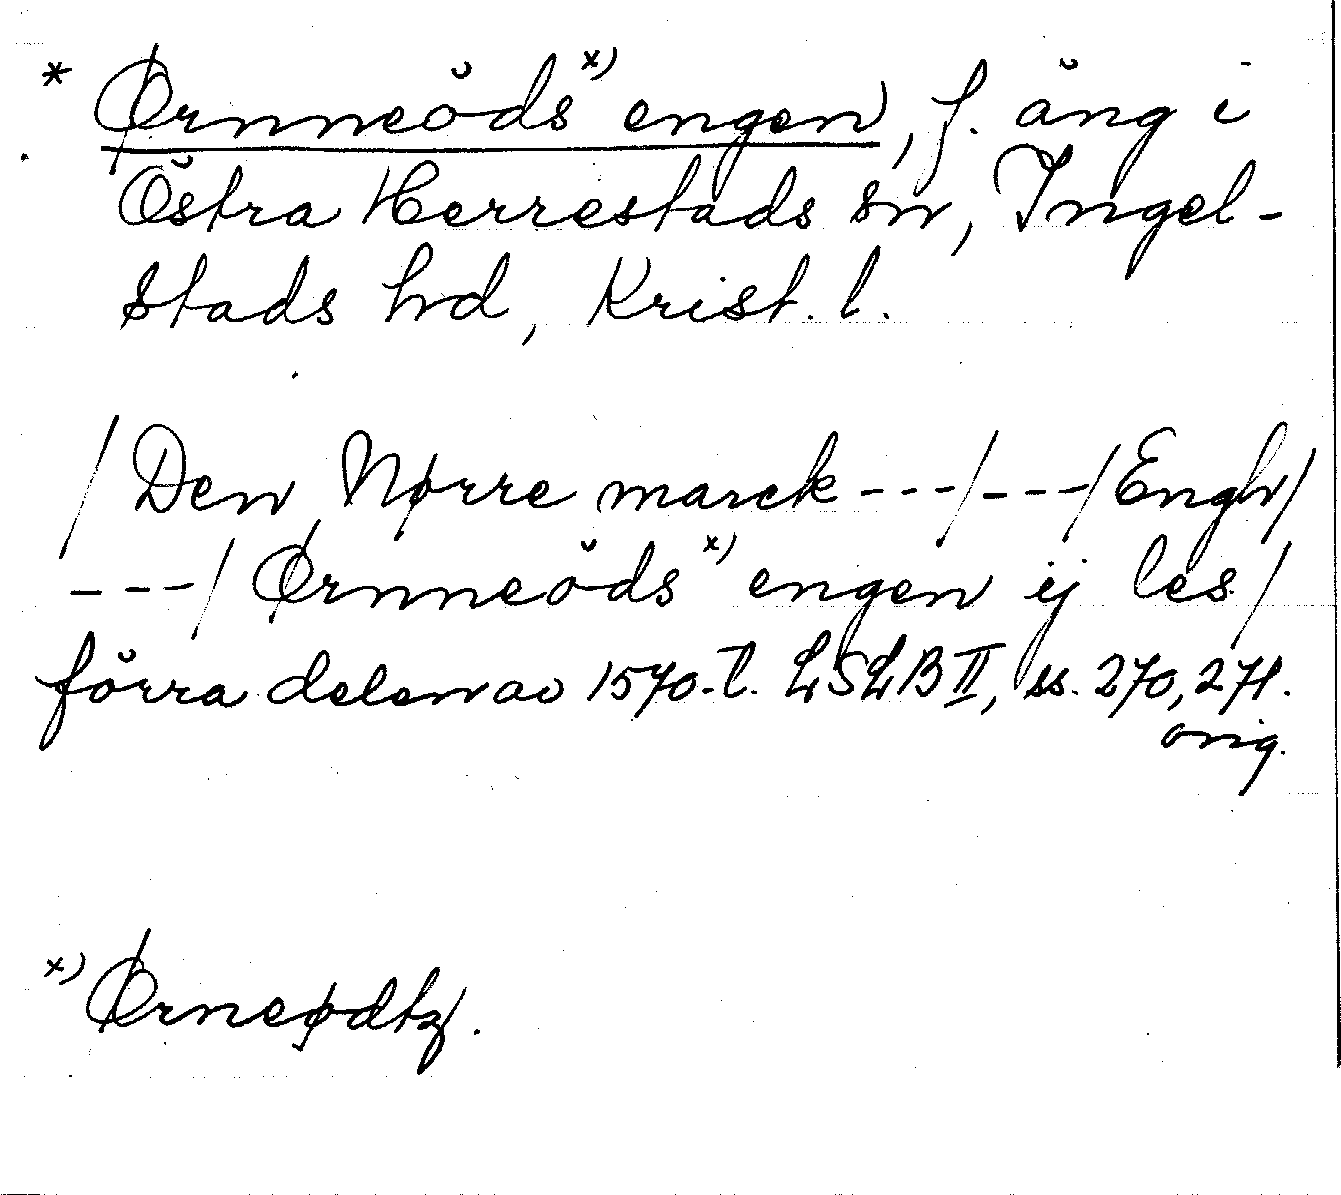 * Ørnneöds x) engen, f. äng i
Östra Herrestads sn, Ingel-
stads hd, Krist. l.
/Den Nørre marck ---/---/Engh/
---/Ørnneöds x) engen ej les/
förra delen av 1570-t. LSLB II, ss. 270, 271.
orig.
x) Ørneødtz.